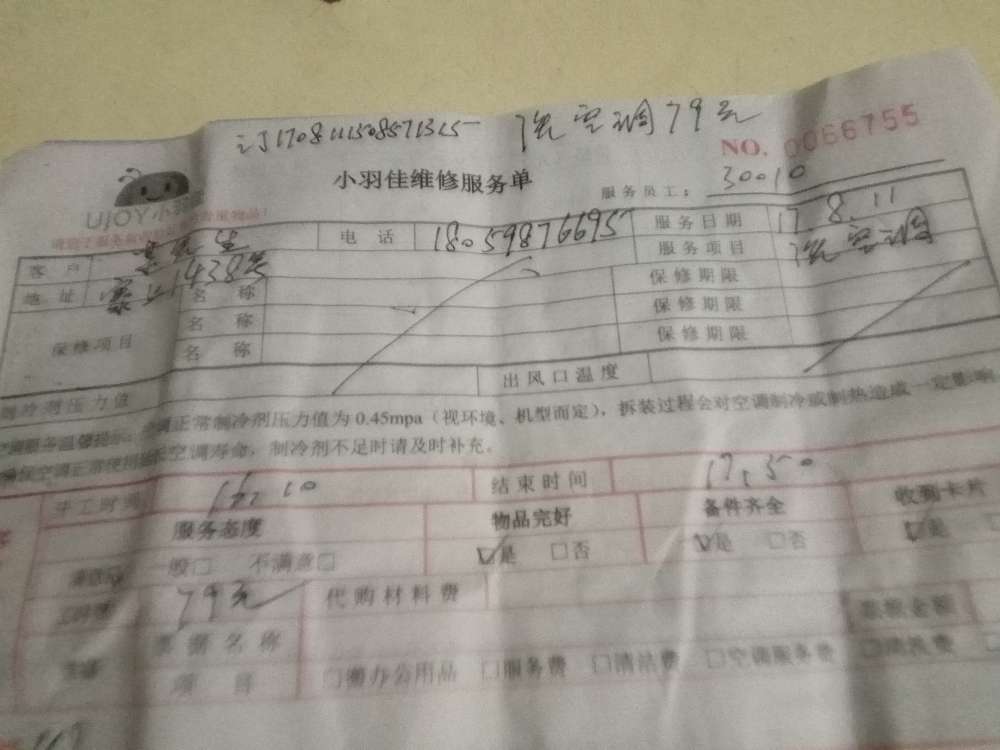 订170811508571315 洗空调79元
NO. 0066755
小羽佳维修服务单 服务员工: 30010
UJOY小羽
客户 电话 18059876695 服务日期 17.8.11
地址 1438号 名称 服务项目 洗空调
保修项目 名称 保修期限
名称 保修期限
保修期限
制冷剂压力值 出风口温度
空调正常制冷剂压力值为0.45mpa（视环境、机型而定），拆装过程会对空调制冷或制热造成一定影响
空调寿命，制冷剂不足时请及时补充。
开工时间 16:10 结束时间 17:50
服务态度 物品完好 备件齐全 收到卡片
般□ 不满意□ ☑是 □否 ☑是 □否 ☑是
79元 代购材料费
票据名称 票额金额
项目 □办公用品 □服务费 □清洁费 □空调服务费